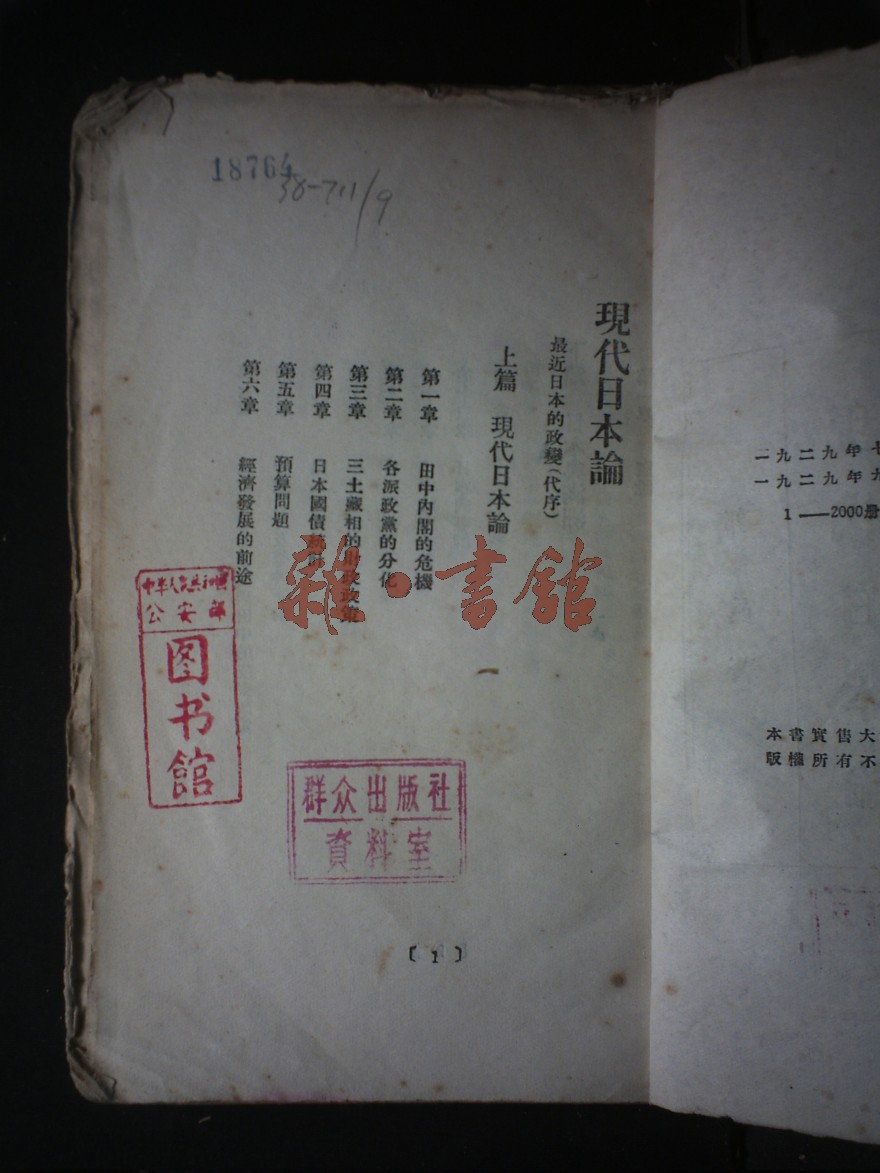 18764
38-711/9
現代日本論
最近日本的政變(代序)
上篇　現代日本論
第一章　田中內閣的危機
第二章　各派政黨的分化
第三章　三土藏相的財政政策
第四章　日本國債
第五章　預算問題
第六章　經濟發展的前途
雜·書館
中华人民共和国
公安部
图书馆
群众出版社
資料室
〔1〕
一九二九年七
一九二九年九
1—2000册
本書實售大
版權所有不